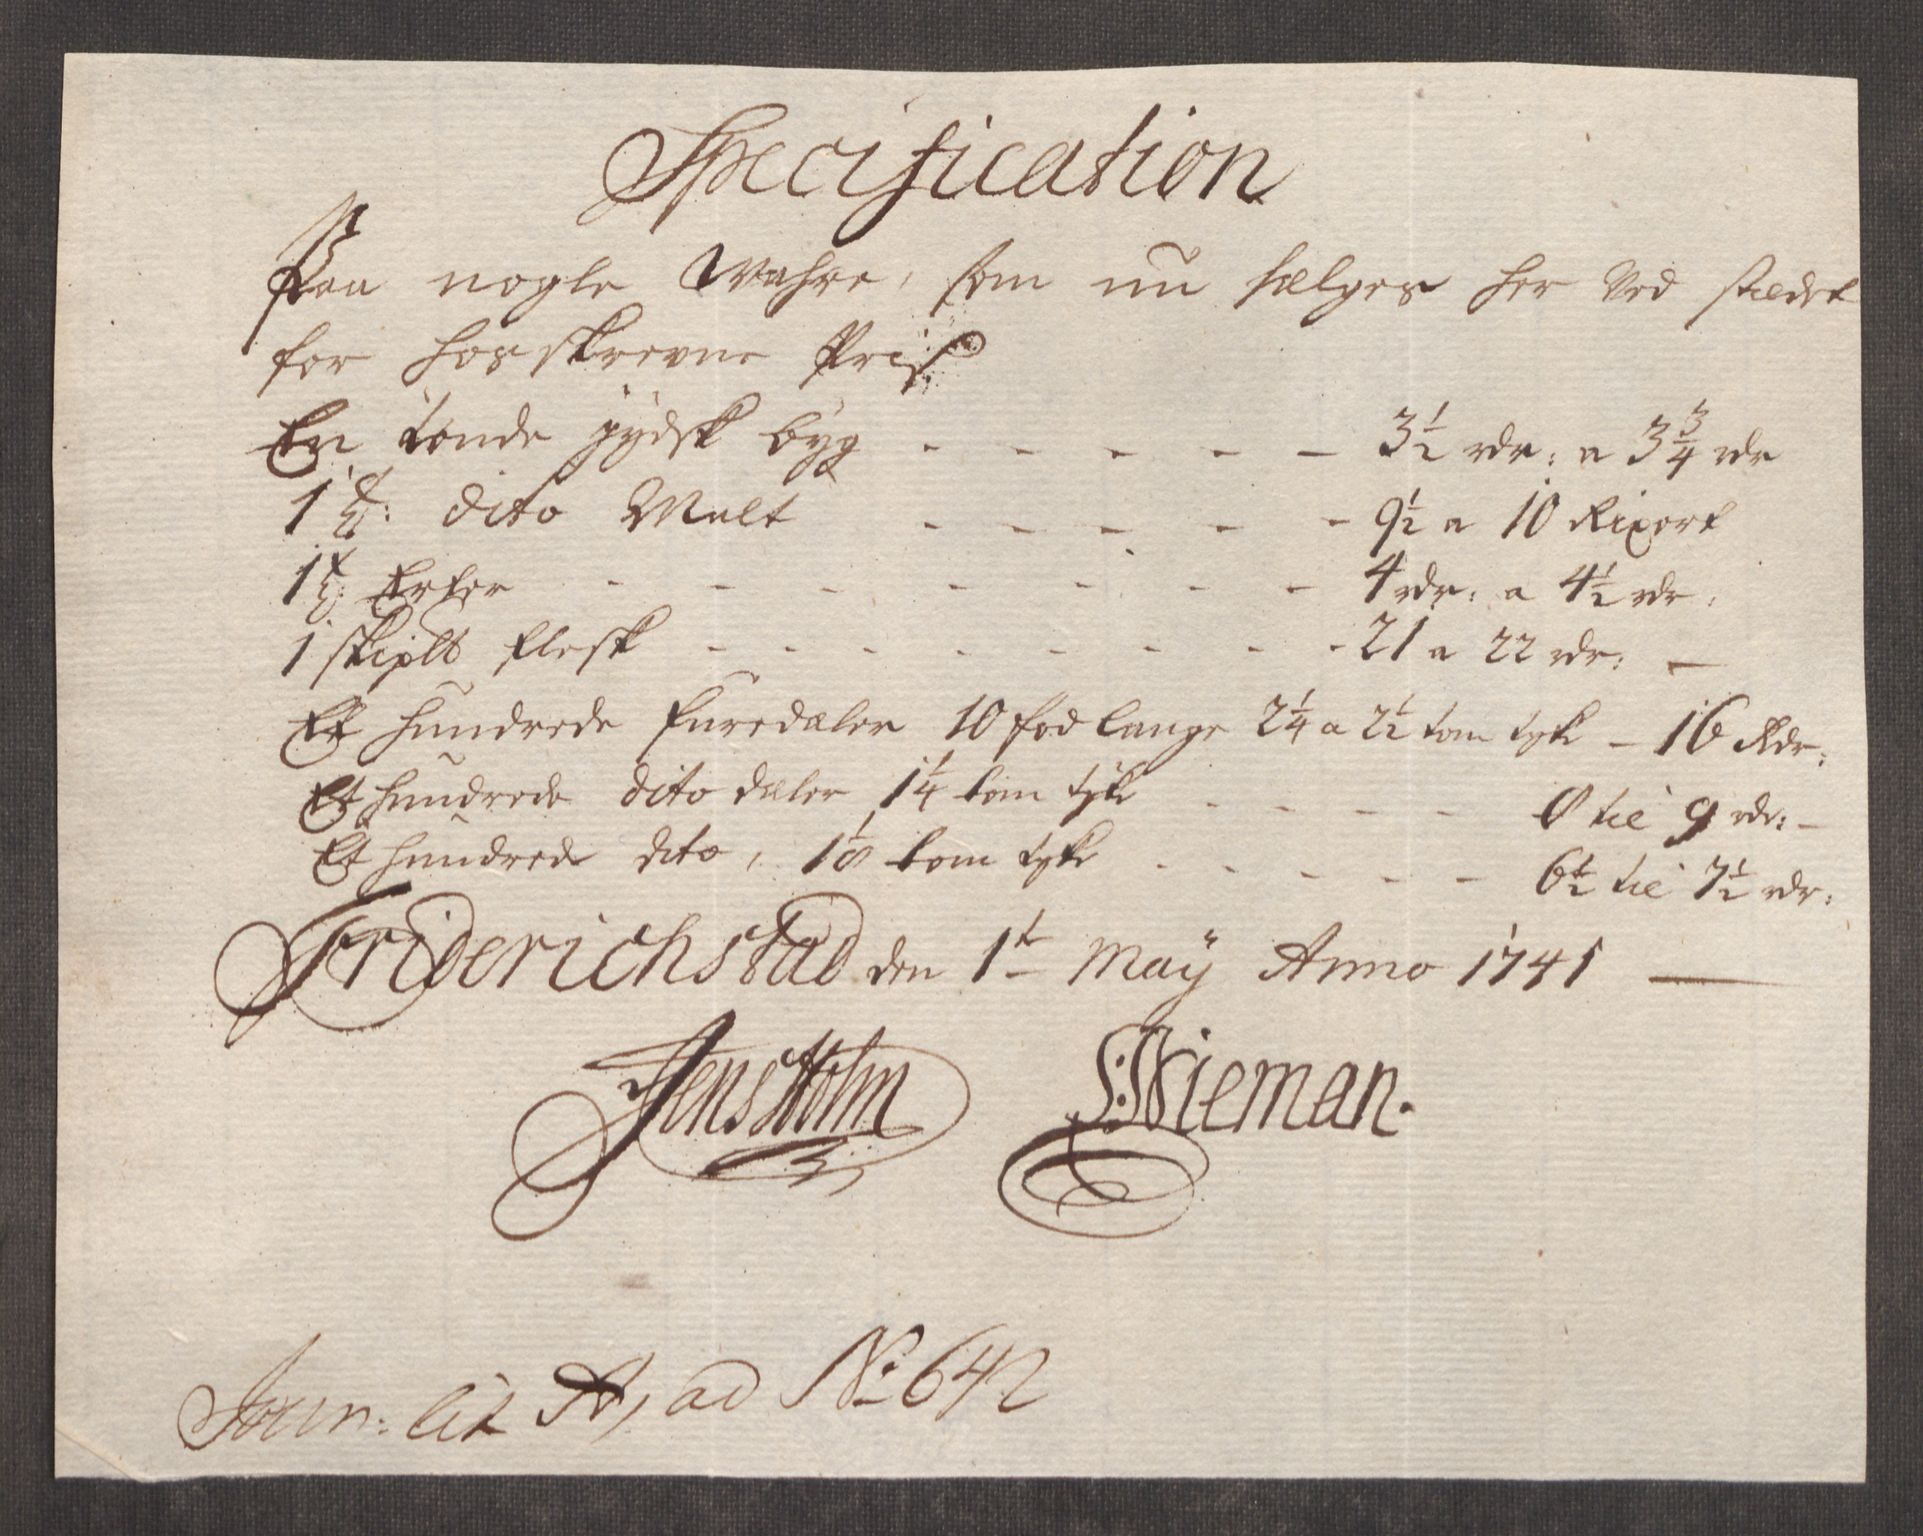 Specification
Paa nogle Wahre, som nu sælges her ved stædet
for hosskrevne Pris
En tønde jydsk byg - - - - - 3½ rdr: a 3¾ rdr
1 td: dito Malt - - - - - 9½ a 10 Rixort
1 td: Erter - - - - - - - 4 rdr: a 4½ rdr:
1 skip℔ flesk - - - - - - - 21 a 22 rdr: —
Et hundrede furedæler 10 fod lange 2¼ a 2½ tom tyk - 16 Rdr:
Et hundrede dito dæler 1¼ tom tyk - - - - 8 til 9 rdr: -
Et hundrede dito, 1⅛ tom tyk - - - - - 6½ til 7½ rdr:
Friderichstad den 1t May Anno 1741 —
Jens Holm S: Wieman.
Journ: Lit A, ad No: 642